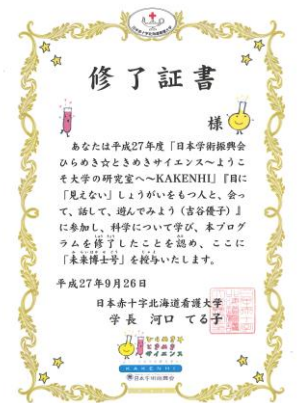 修了証書
様
あなたは平成27年度「日本学術振興会
ひらめき☆ときめきサイエンス～ようこ
そ大学の研究室へ～KAKENHI」『目に
「見えない」しょうがいをもつ人と、会っ
て、話して、遊んでみよう（古谷優子）』
に参加し、科学について学び、本プログ
ラムを修了したことを認め、ここに
「未来博士号」を授与いたします。
平成27年9月26日
日本赤十字北海道看護大学
学長 河口 てる子
ひらめき☆
ときめき
サイエンス
KAKENHI
日本学術振興会